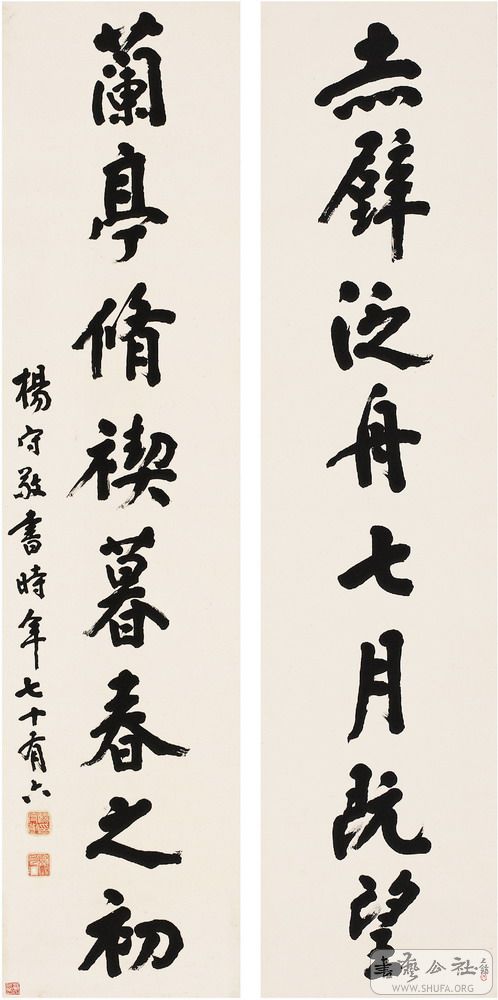 赤壁泛舟七月既望
蘭亭脩禊暮春之初
楊守敬書時年七十有六
書藝公社
WWW.SHUFA.ORG